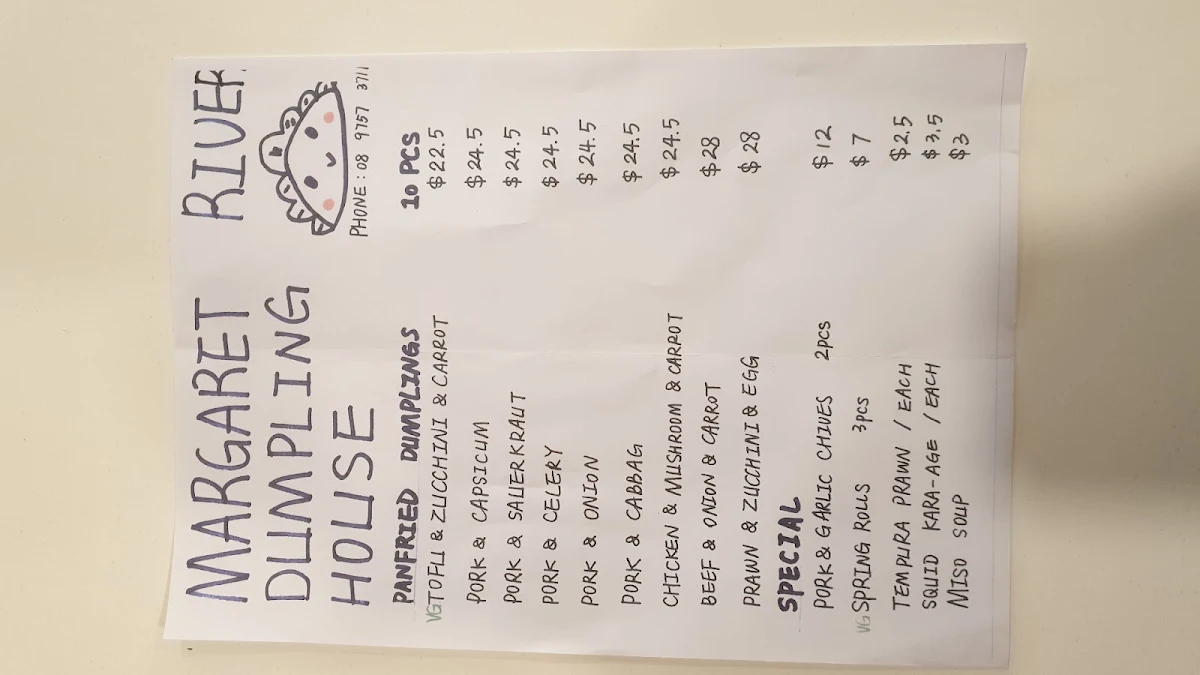 MARGARET RIVER
DUMPLING
HOUSE
PHONE: 08 9757 3711
PANFRIED DUMPLINGS 10 PCS
VG TOFU & ZUCCHINI & CARROT $22.5
PORK & CAPSICUM $24.5
PORK & SAUERKRAUT $24.5
PORK & CELERY $24.5
PORK & ONION $24.5
PORK & CABBAG $24.5
CHICKEN & MUSHROOM & CARROT $24.5
BEEF & ONION & CARROT $28
PRAWN & ZUCCHINI & EGG $28
SPECIAL
PORK & GARLIC CHIVES 2PCS $12
VG SPRING ROLLS 3PCS $7
TEMPURA PRAWN / EACH $2.5
SQUID KARA-AGE / EACH $3.5
MISO SOUP $3